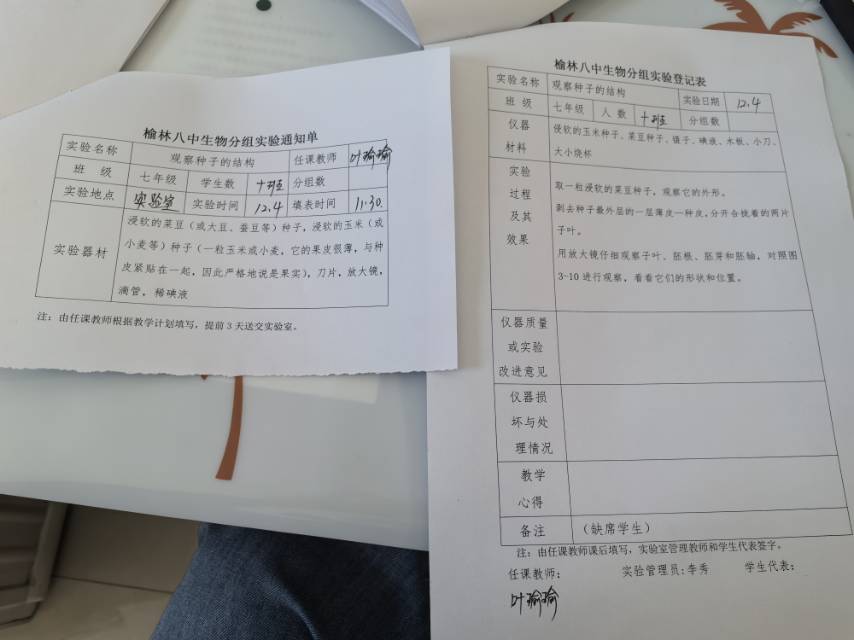 榆林八中生物分组实验通知单
实验名称 观察种子的结构 任课教师 叶瑜瑜
班 级 七年级 学生数 十班 分组数
实验地点 实验室 实验时间 12.4 填表时间 11.30
实验器材
浸软的菜豆(或大豆、蚕豆等)种子,浸软的玉米(或
小麦等)种子(一粒玉米或小麦,它的果皮很薄,与种
皮紧贴在一起,因此严格地说是果实),刀片,放大镜,
滴管,稀碘液
注:由任课教师根据教学计划填写,提前3天送交实验室。
榆林八中生物分组实验登记表
实验名称 观察种子的结构 实验日期 12.4
班 级 七年级 人 数 十班 分组数
仪器
材料
浸软的玉米种子、菜豆种子、镊子、碘液、木板、小刀、
大小烧杯
实验
过程
及其
效果
取一粒浸软的菜豆种子,观察它的外形。
剥去种子最外层的一层薄皮一种皮,分开合拢着的两片
子叶。
用放大镜仔细观察子叶、胚根、胚芽和胚轴,对照图
3-10进行观察,看看它们的形状和位置。
仪器质量
或实验
改进意见
仪器损
坏与处
理情况
教学
心得
备注 (缺席学生)
注:由任课教师课后填写,实验室管理教师和学生代表签字。
任课教师: 实验管理员:李秀 学生代表:
叶瑜瑜